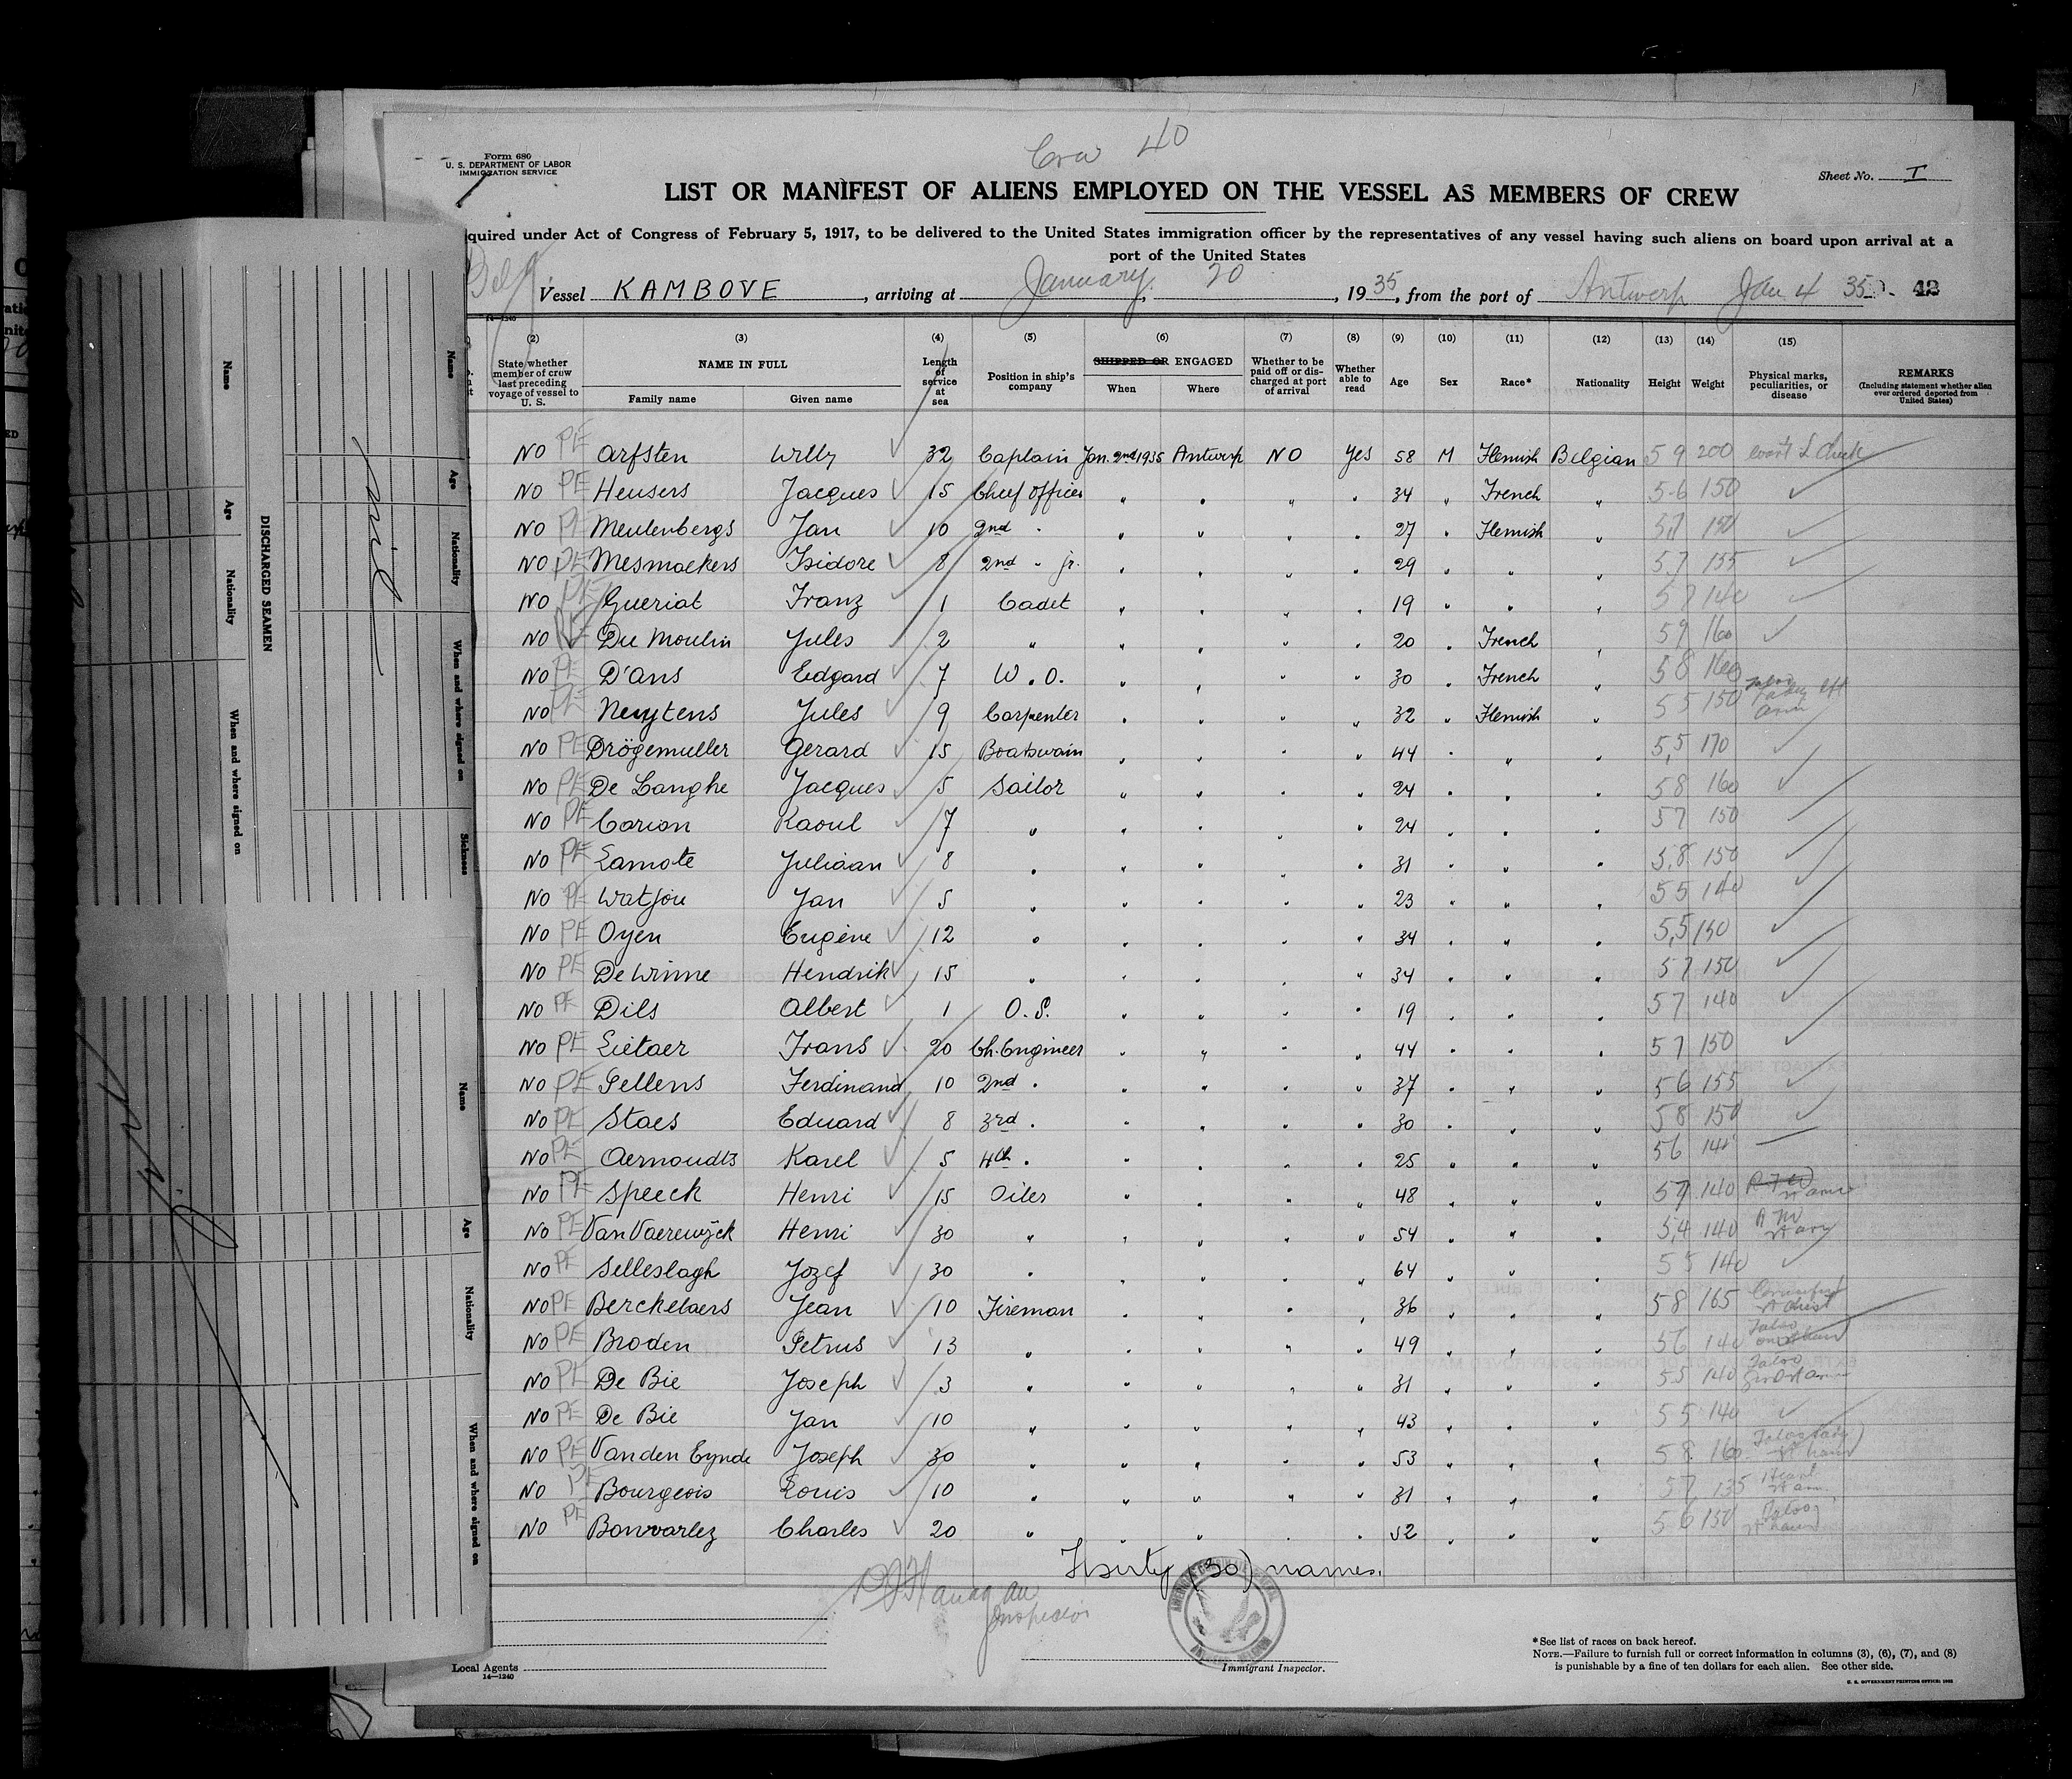 Crew 40
Form 680
U. S. DEPARTMENT OF LABOR
IMMIGRATION SERVICE
Sheet No. I
LIST OR MANIFEST OF ALIENS EMPLOYED ON THE VESSEL AS MEMBERS OF CREW
quired under Act of Congress of February 5, 1917, to be delivered to the United States immigration officer by the representatives of any vessel having such aliens on board upon arrival at a
port of the United States
Belg
Vessel KAMBOVE, arriving at January, 20, 1935, from the port of Antwerp Jan 4 35 42
14—1240
(2) (3) (4) (5) (6) (7) (8) (9) (10) (11) (12) (13) (14) (15)
State whether member of crew last preceding voyage of vessel to U. S. NAME IN FULL Family name Given name Length of service at sea Position in ship's company SHIPPED OR ENGAGED When Where Whether to be paid off or discharged at port of arrival Whether able to read Age Sex Race* Nationality Height Weight Physical marks, peculiarities, or disease REMARKS (Including statement whether alien ever ordered deported from United States)
NO PE Arfsten Willy 32 Captain Jan. 2nd 1935 Antwerp NO Yes 58 M Flemish Belgian 5 9 200 wart L Cheek
NO PE Heusers Jacques 15 Chief Officer " " " " 34 " French " 5-6 150
NO PE Meulenbergs Jan 10 2nd " " " " " 27 " Flemish " 5,7 150
NO PE Mesmaekers Isidore 8 2nd " jr. " " " " 29 " " " 5,7 155
NO PE Gueriat Franz 1 Cadet " " " " 19 " " " 5 7 140
NO PE Du Moulin Jules 2 " " " " " 20 " French " 5 9 160
NO PE D'Ans Edgard 7 W. O. " " " " 30 " French " 5 8 160
NO PE Neuytens Jules 9 Carpenter " " " " 32 " Flemish " 5 5 150 left arm
NO PE Drögemuller Gerard 15 Boatswain " " " " 44 " " " 5,5 170
NO PE De Langhe Jacques 5 Sailor " " " " 24 " " " 5 8 160
NO PE Carion Raoul 7 " " " " " 24 " " " 5 7 150
NO PE Lamote Juliaan 8 " " " " " 31 " " " 5,8 150
NO PE Watjou Jan 5 " " " " " 23 " " " 5 5 140
NO PE Oyen Eugène 12 " " " " " 34 " " " 5,5 150
NO PE De Winne Hendrik 15 " " " " " 34 " " " 5 7 150
NO PE Dils Albert 1 O. S. " " " " 19 " " " 5 7 140
NO PE Lietaer Frans 20 Ch. Engineer " " " " 44 " " " 5 7 150
NO PE Pellens Ferdinand 10 2nd " " " " " 37 " " " 5 6 155
NO PE Staes Eduard 8 3rd " " " " " 30 " " " 5 8 150
NO PE Aernoudts Karel 5 4th " " " " " 25 " " " 5 6 145
NO PE Speeck Henri 15 Oiler " " " " 48 " " " 5 7 140
NO PE Van Vaerewijck Henri 30 " " " " " 54 " " " 5,4 140
NO PE Selleslagh Jozef 30 " " " " " 64 " " " 5 5 140
NO PE Berckelaers Jean 10 Fireman " " " " 36 " " " 5 8 165 Crucifix rt chest
NO PE Broden Petrus 13 " " " " " 49 " " " 5 6 140
NO PE De Bie Joseph 3 " " " " " 31 " " " 5 5 140
NO PE De Bie Jan 10 " " " " " 43 " " " 5 5 140
NO PE Vanden Eynde Joseph 30 " " " " " 53 " " " 5 8 160
NO PE Bourgeois Louis 10 " " " " " 31 " " " 5 7 135 Heart rt arm
NO PE Bonvarlez Charles 20 " " " " " 52 " " " 5 6 150
Thirty (30) names.
Inspector
Local Agents
14—1240
Immigrant Inspector.
*See list of races on back hereof.
NOTE.—Failure to furnish full or correct information in columns (3), (6), (7), and (8)
is punishable by a fine of ten dollars for each alien. See other side.
U. S. GOVERNMENT PRINTING OFFICE: 1932
DISCHARGED SEAMEN
Name
Age
Nationality
When and where signed on
Name
Age
Nationality
When and where signed on
Sickness
Name
Age
Nationality
When and where signed on
nil